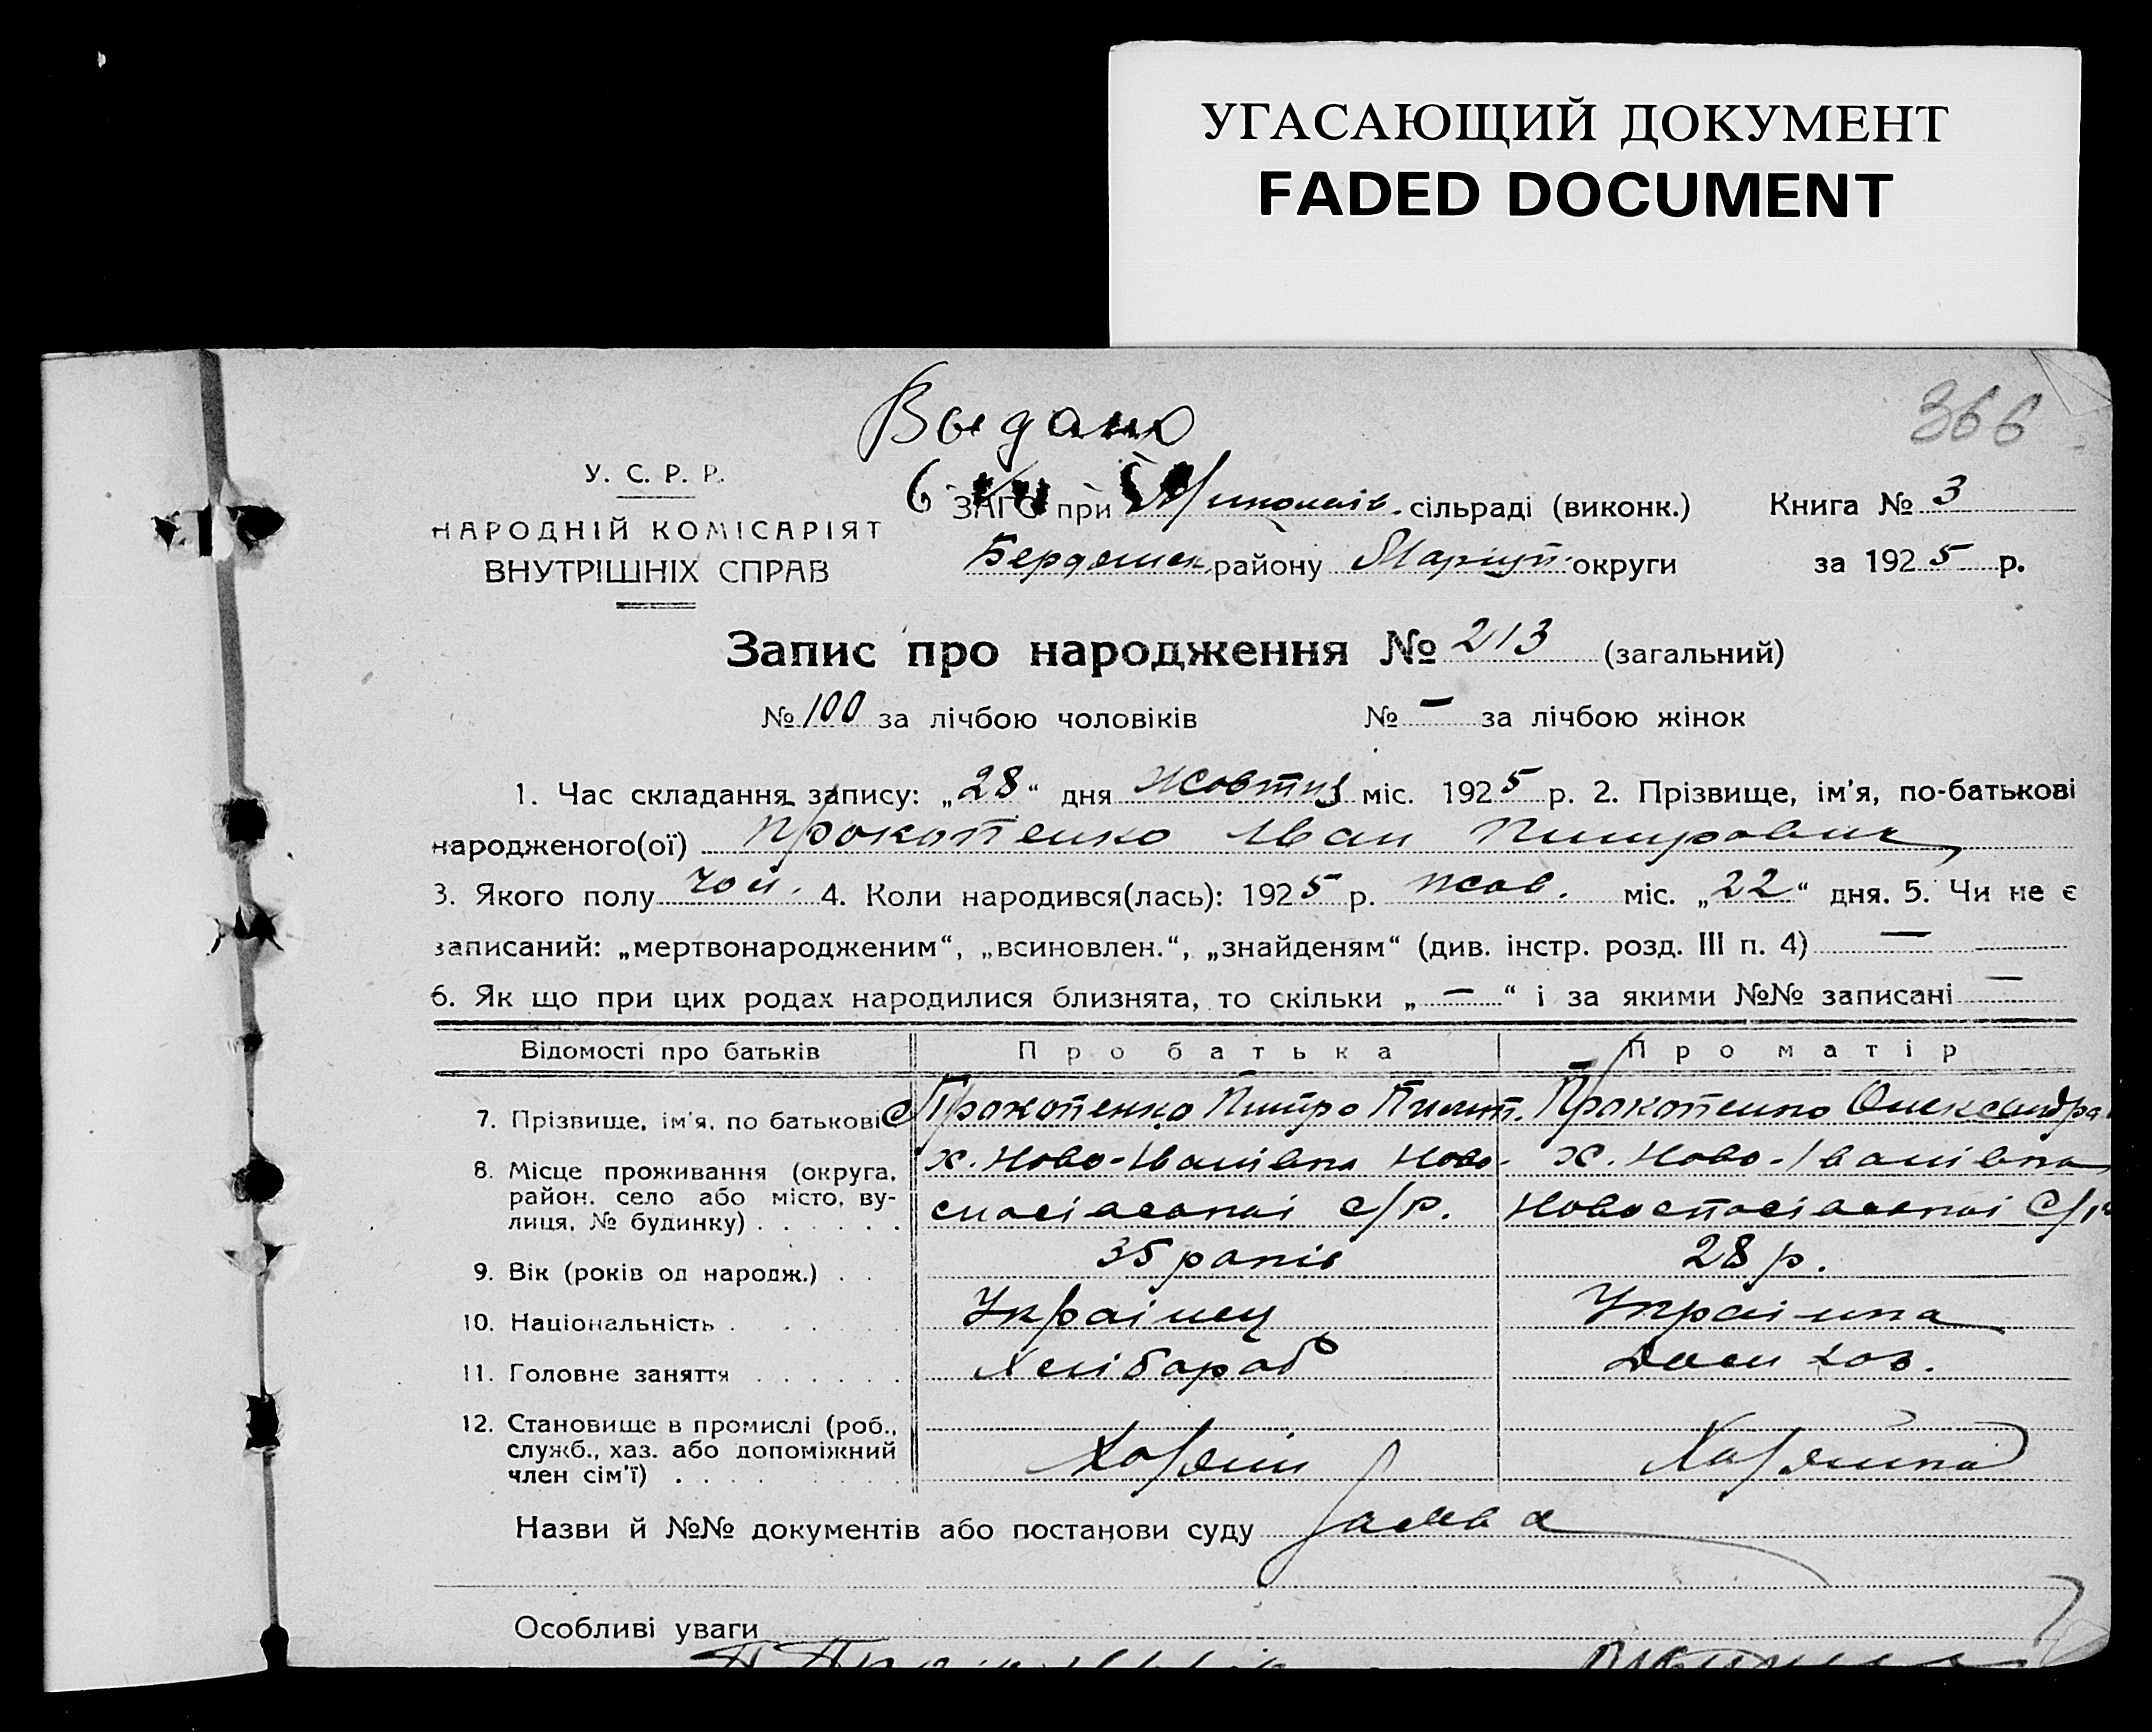 УГАСАЮЩИЙ ДОКУМЕНТ
FADED DOCUMENT
Выдано
366
У. С. Р. Р.
НАРОДНІЙ КОМІСАРІЯТ
ВНУТРІШНІХ СПРАВ
ЗАГС при Миколаїв. сільраді (виконк.) Книга № 3
Бердянск. району Маріуп. округи за 1925 р.
Запис про народження № 213 (загальний)
№ 100 за лічбою чоловіків № — за лічбою жінок
1. Час складання запису: „28“ дня Жовтня міс. 1925 р. 2. Прізвище, ім'я, по-батькові
народженого(ої) Прокопенко Іван
3. Якого полу чол. 4. Коли народився(лась): 1925 р. жов. міс. „22“ дня. 5. Чи не є
записаний: „мертвонародженим“, „всиновлен.“, „знайденям“ (див. інстр. розд. III п. 4) —
6. Як що при цих родах народилися близнята, то скільки „—“ і за якими №№ записані —
Відомості про батьків Про батька Про матір
7. Прізвище, ім'я, по батькові Прокопенко Прокопенко Олександра
8. Місце проживання (округа, х. Ново-Іванівка Ново- х. Ново-Іванівка
район, село або місто, ву- спасівської с/р. Новоспасівської с/р
лиця, № будинку)
9. Вік (років од народж.) 35 років 28 р.
10. Національність Українец Українка
11. Головне заняття Хлібороб Дом хоз.
12. Становище в промислі (роб.,
служб., хаз. або допоміжний Хазяїн Хазяйка
член сім'ї)
Назви й №№ документів або постанови суду Заява
Особливі уваги